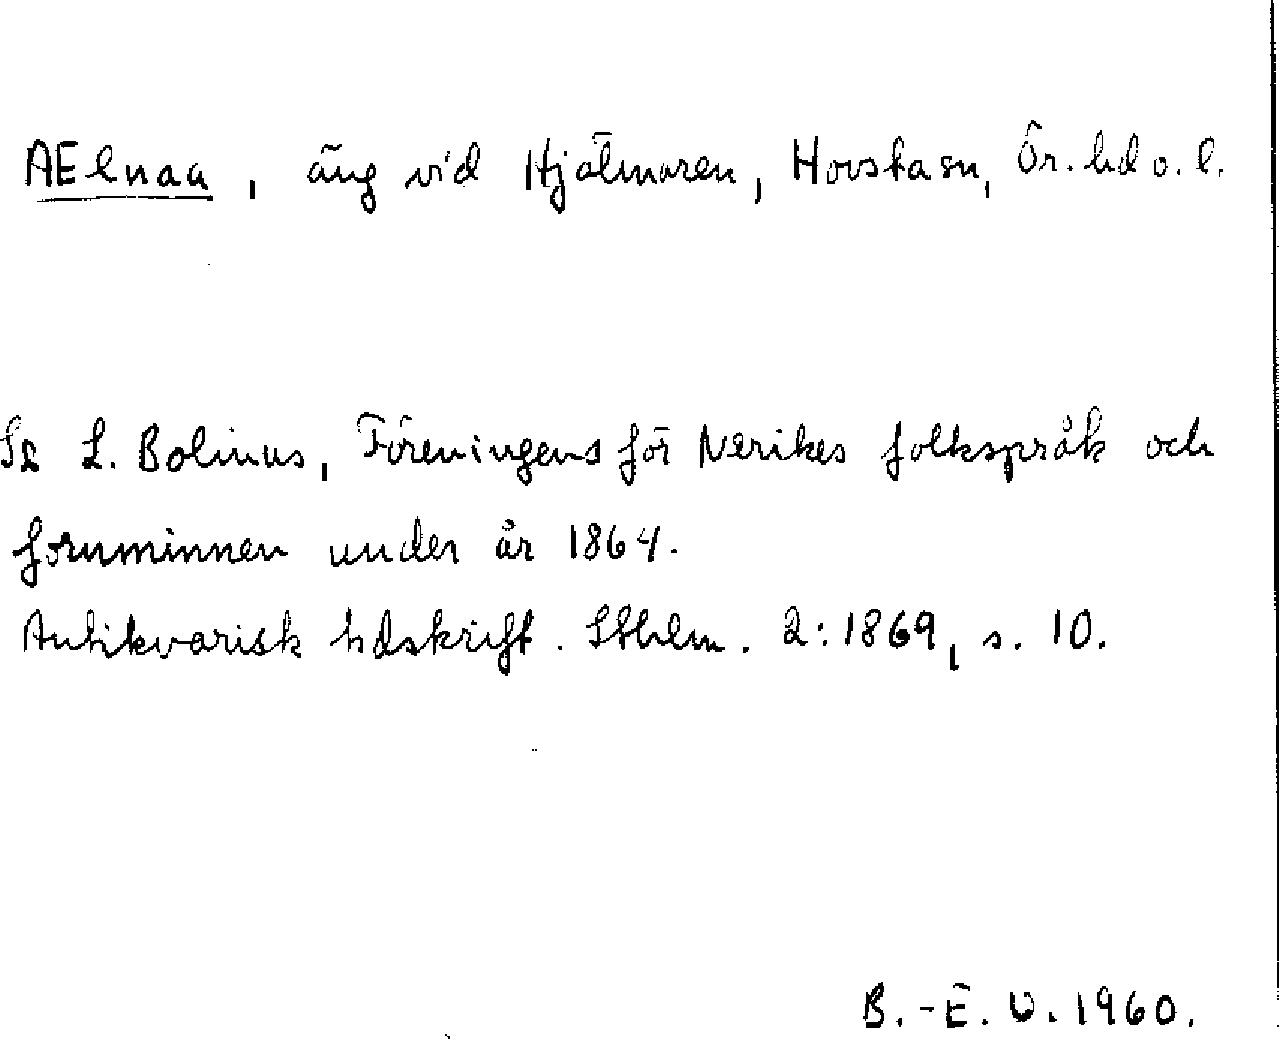 AElnaa, äng vid Hjälmaren, Hovsta sn, Ör. hd o. l.
Se L. Bolinus, Föreningens för Nerikes folkspråk och
fornminnen under år 1864.
Antikvarisk tidskrift. Sthlm. 2:1869, s. 10.
B.-E. O. 1960.